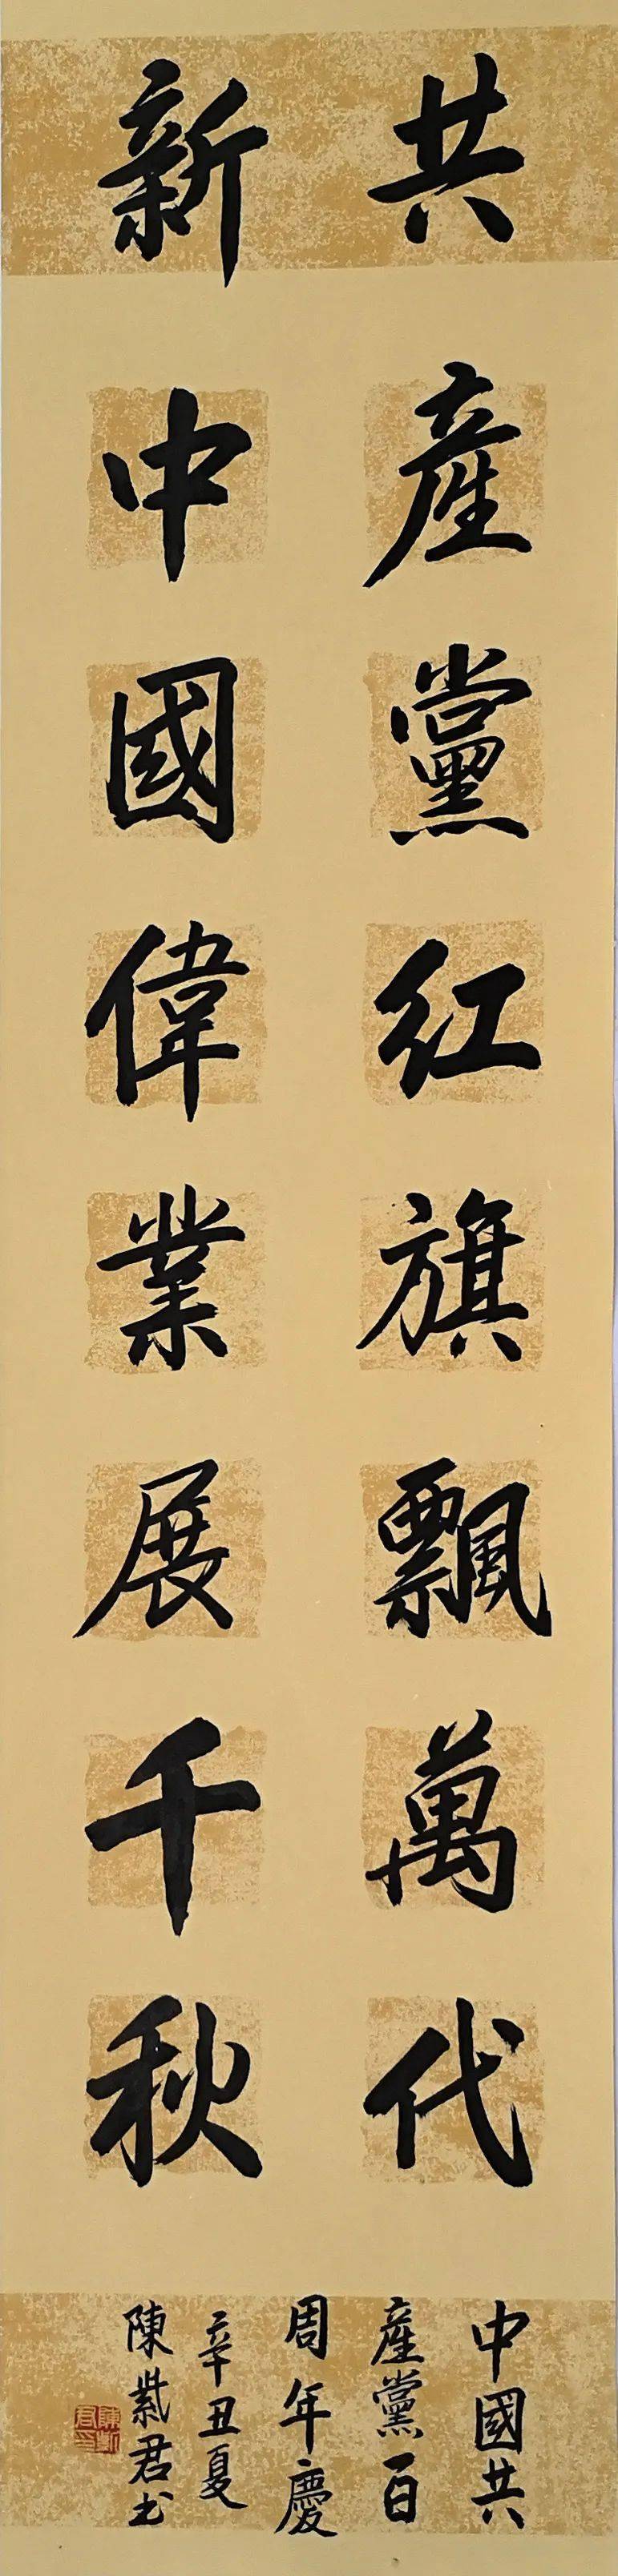 共產黨红旗飄萬代
新中國偉業展千秋
中國共
產黨百
周年慶
辛丑夏
陳紫君书